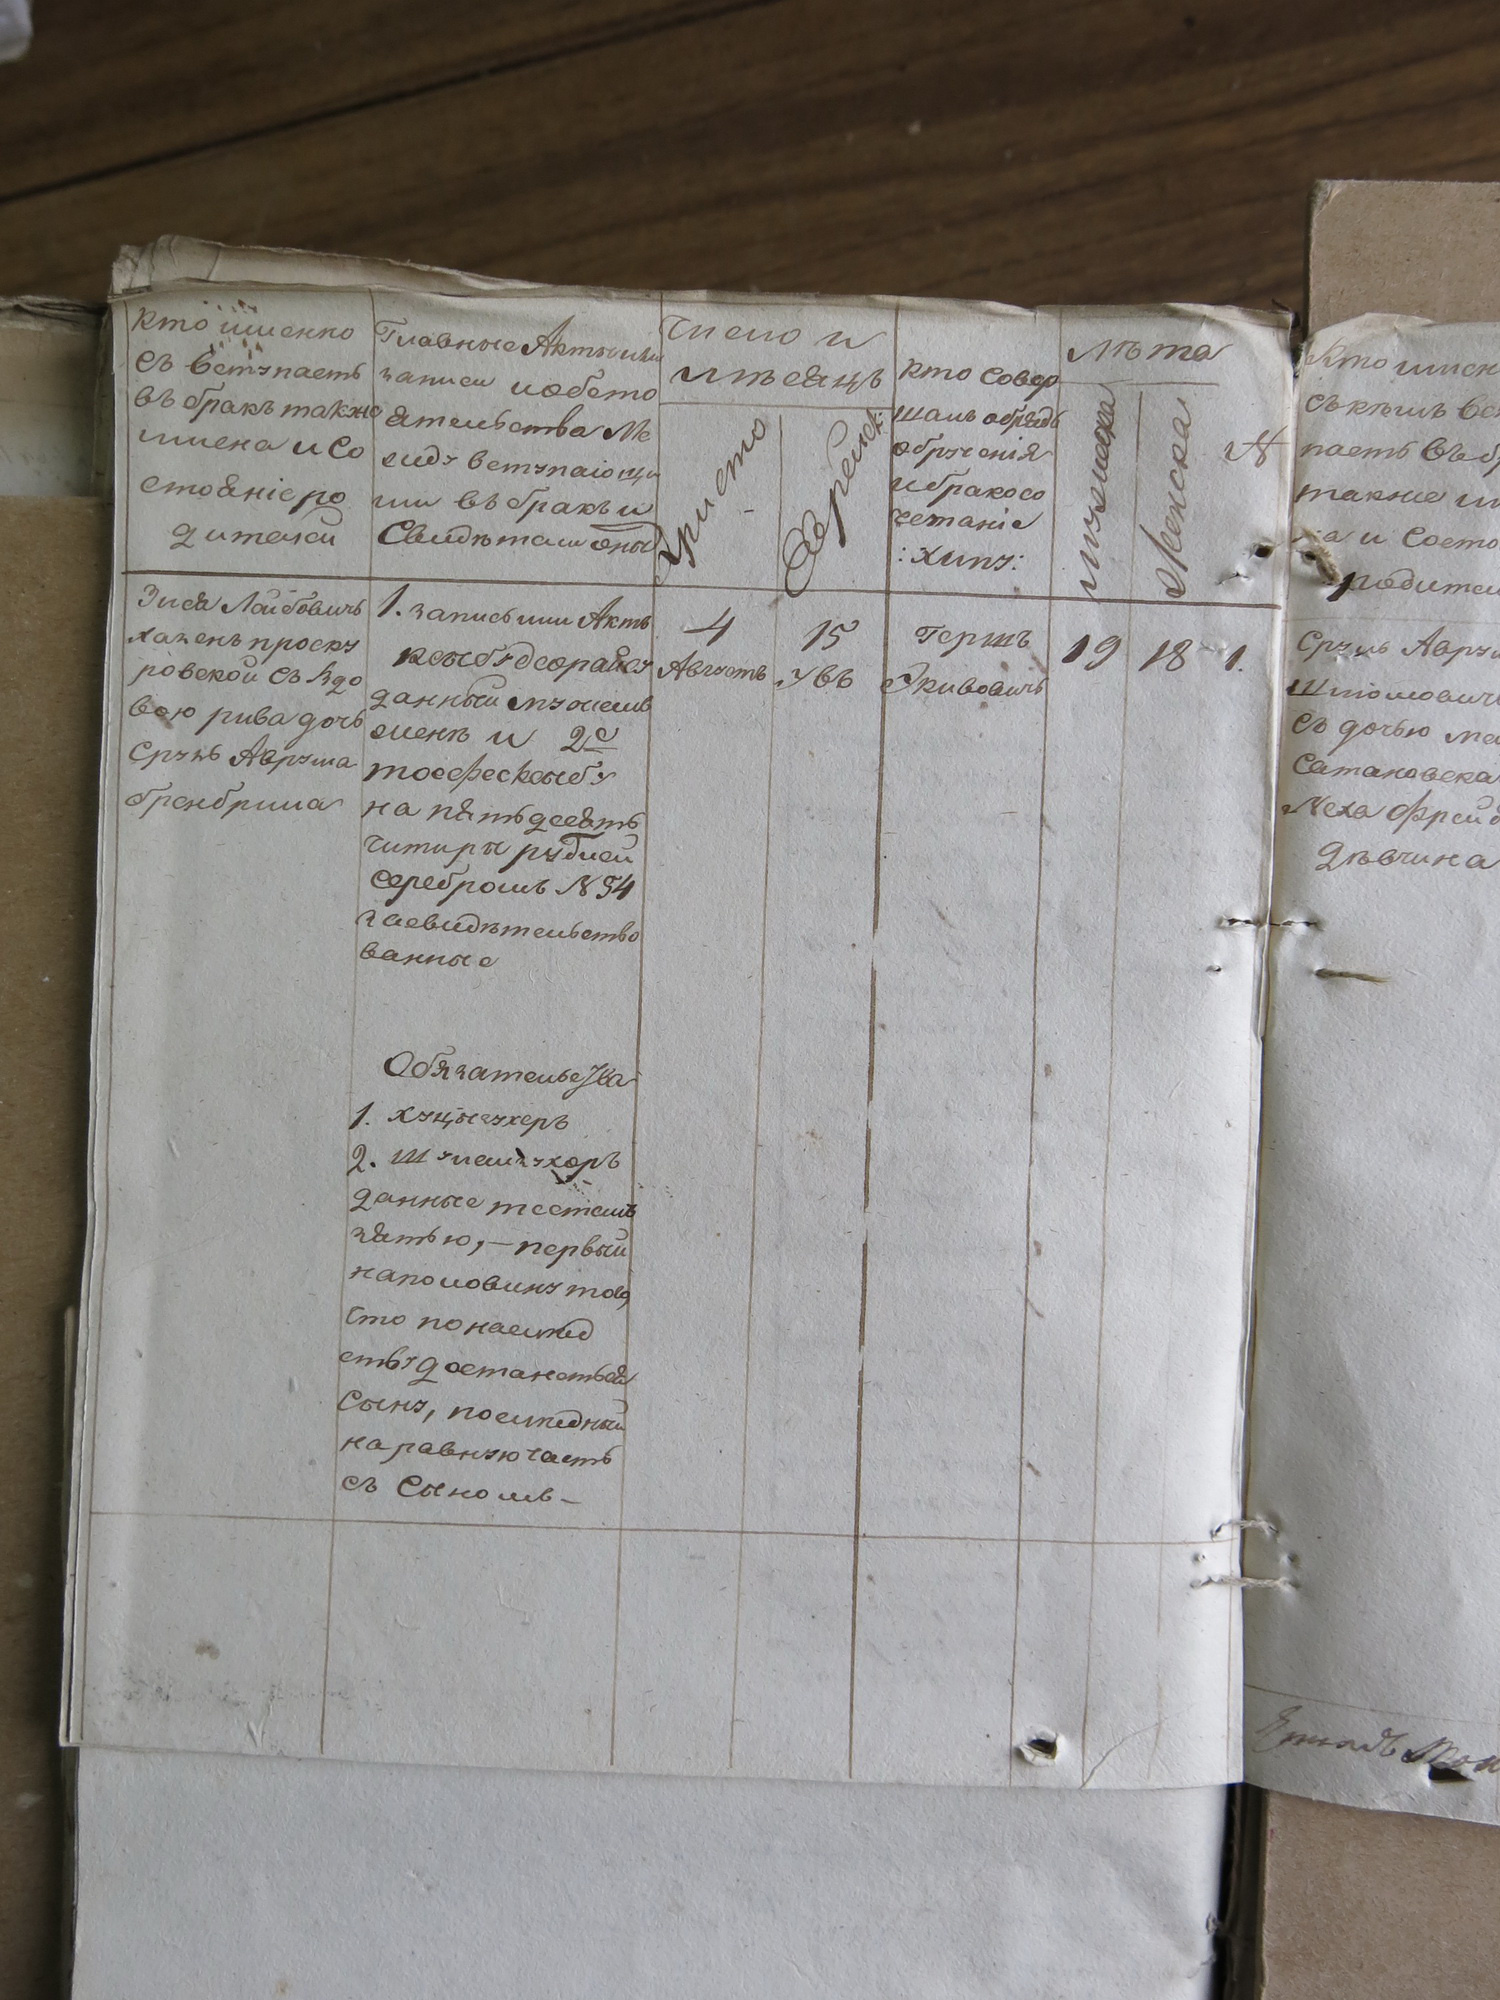 Кто именно
съ вступаетъ
въ бракъ также
имена и со
стояніе ро
дителей
Главные Акты или
записи и обсто
ятельства ме
жду вступающи
ми въ бракъ и
Свидѣтели оныхъ
Число и
мѣсяцъ
Христо
Еврейск:
кто совер
шалъ обрядъ
обрученія
и бракосо
четаніе
:хипу:
Лѣта
мужеска
женска
N
Зися Лейбовичъ
хазенъ проску
ровской съ вдо
вою рива дочь
Сруль Аврума
бренбрима
1. запись или Актъ
ксыбу деорайсу
данный мужемъ
женѣ и 2е
тосефесксыбу
на пятьдесятъ
читыри рублей
серебромъ N 54
засвидѣтельство
ванные
Обязательства
1. хуцызухеръ
2. Шулемзухоръ
данные тестемъ
зятью, — первый
наполовину того
что понаслед
ству достанеться
сыну, последный
наравную часть
съ сыномъ —
4
Августъ
15
Увъ
Гершъ
Якивовичъ
19
18
1.
Кто имен
съ кемъ вс
паетъ въ бр
также им
на и состо
родител
Сруль Аврум
Шмомовичъ
съ дочью ма
Сатановска
Меха Фрейд
дѣвчина